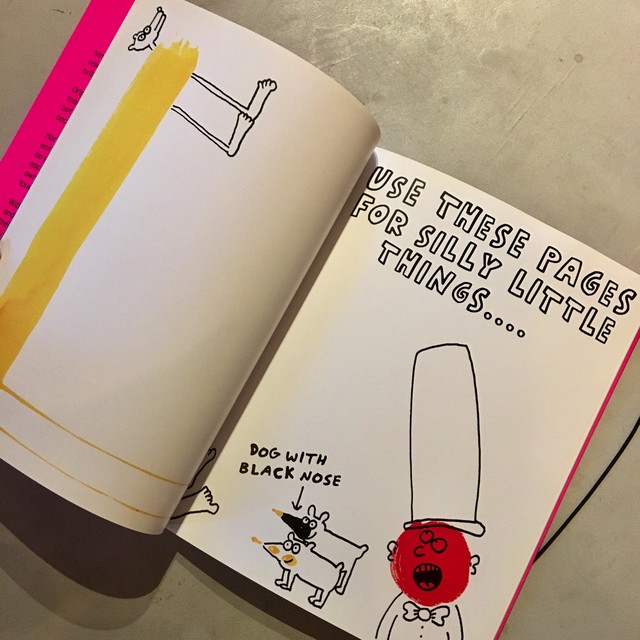 USE THESE PAGES
FOR SILLY LITTLE
THINGS....
DOG WITH
BLACK NOSE